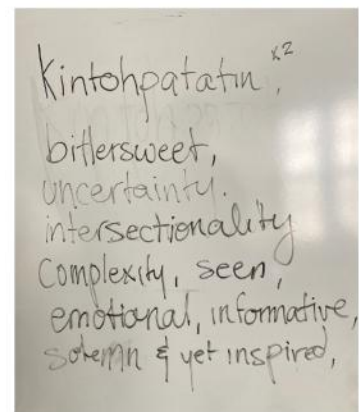 Kintohpatatin, x2
bittersweet,
uncertainty.
intersectionality
Complexity, seen,
emotional, informative,
solemn & yet inspired,